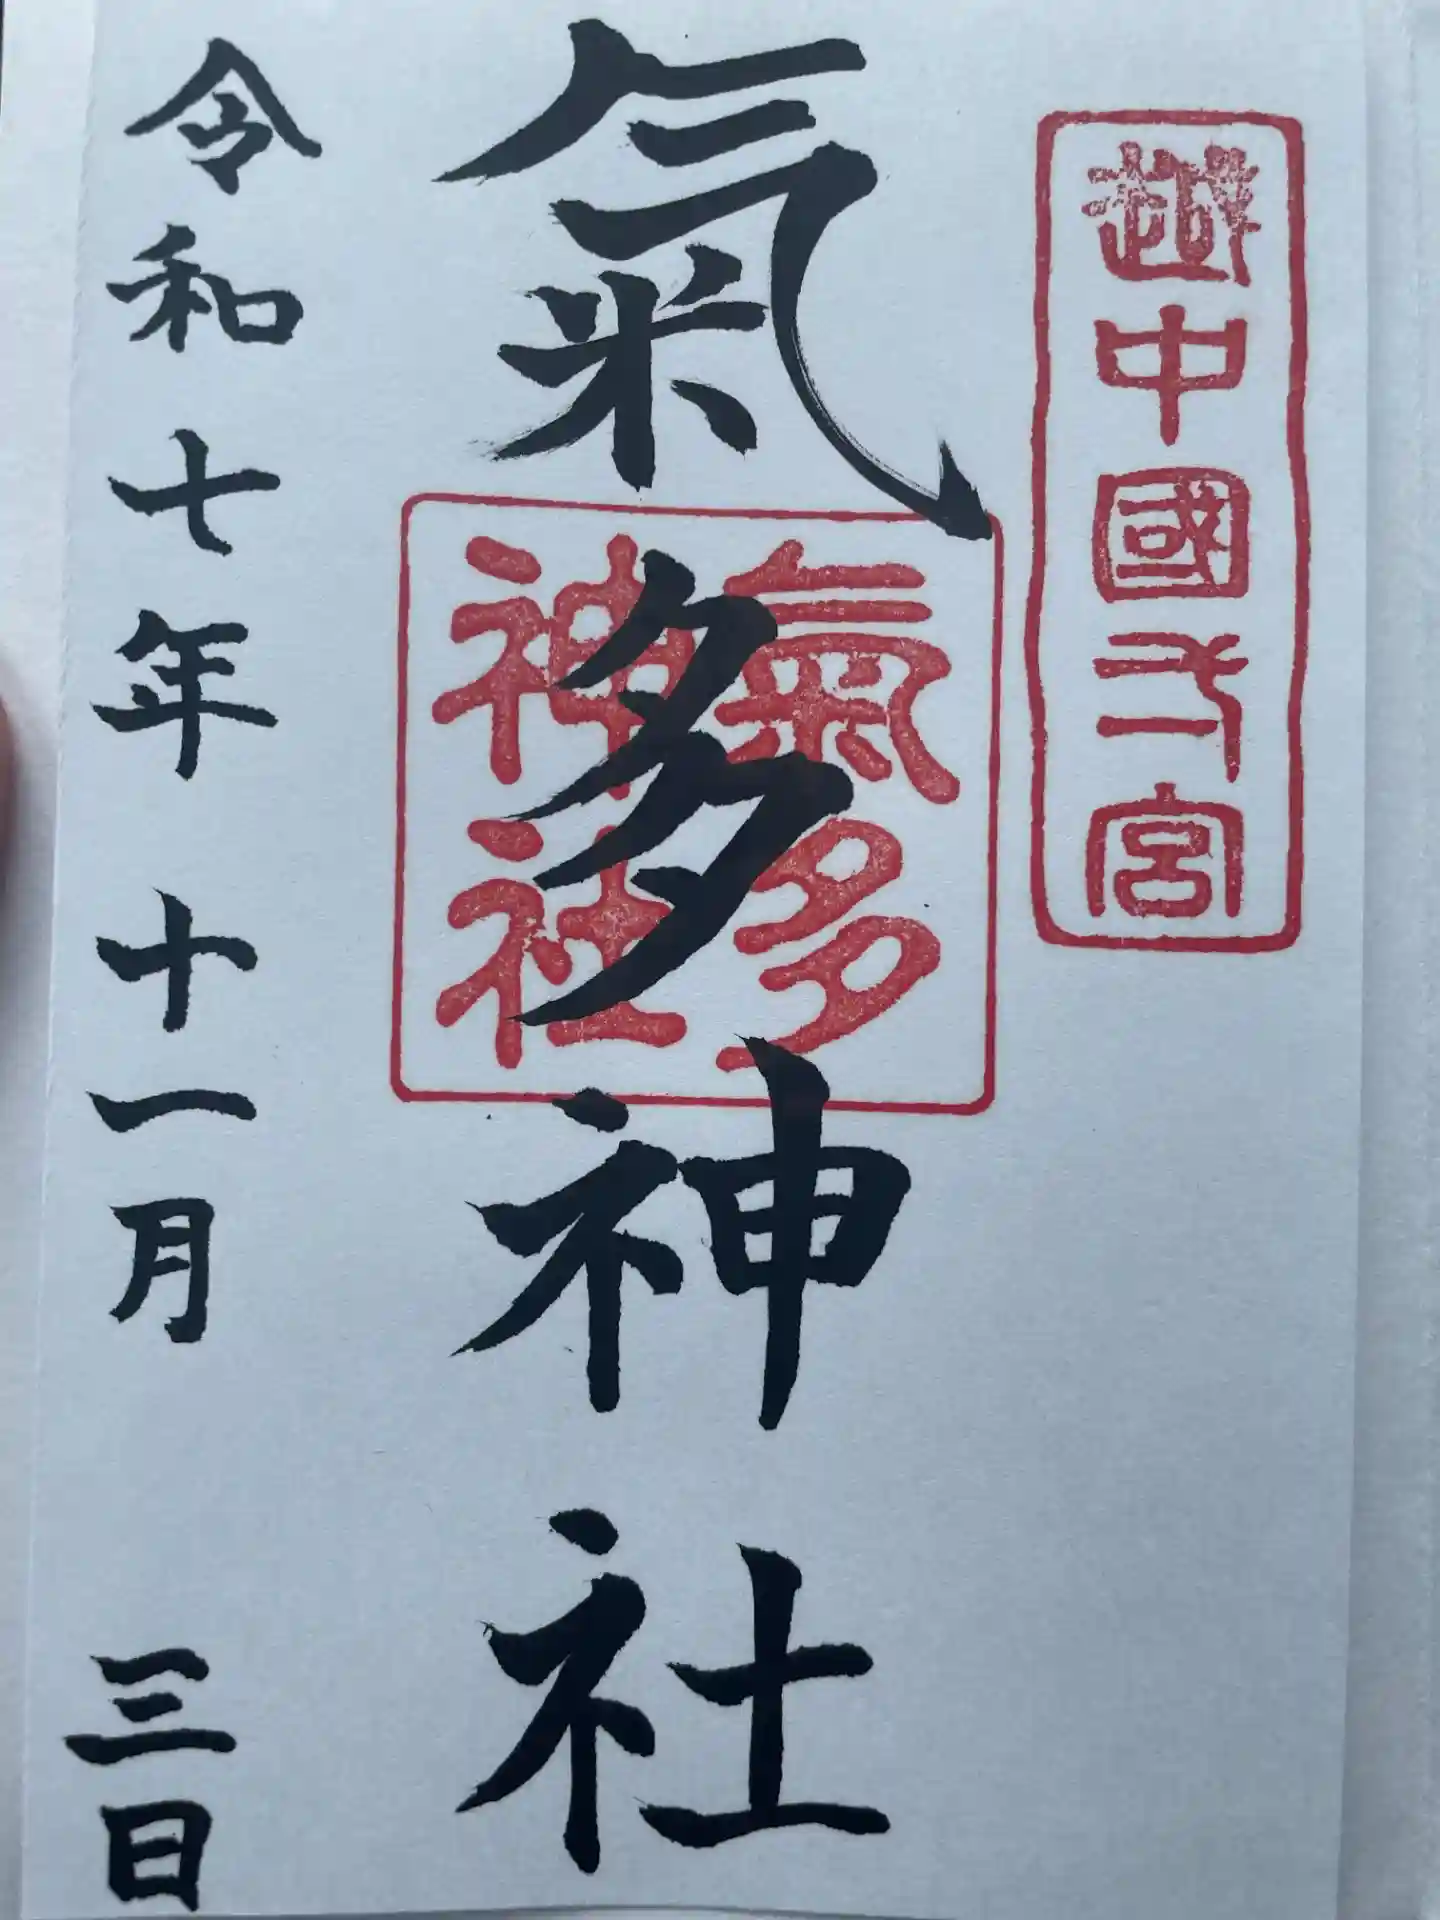 越中國一宮
氣多神社
氣多
神社
令和七年十一月三日